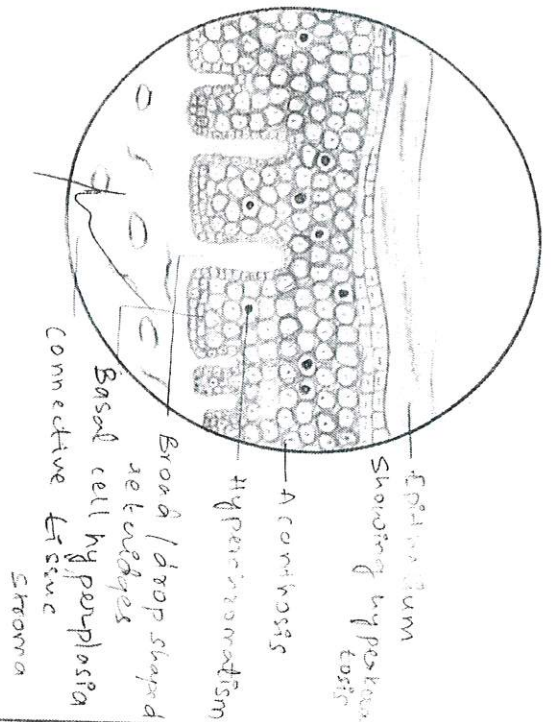 Epithelium
showing hyperkera
tosis
Acanthosis
Hyperchromatism
Broad / drop shaped
rete ridges
Basal cell hyperplasia
connective tissue
stroma